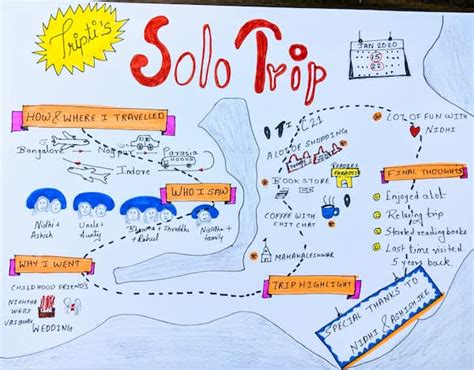 Tripti's
Solo Trip
JAN 2020
15
22
HOW & WHERE I TRAVELLED
Bangalore
Nagpur
Parasia
Indore
WHO I SAW
Nidhi +
Ashish
Uncle +
Aunty
+
Rahul
Shraddha
Nishtha +
family
WHY I WENT
CHILDHOOD FRIENDS
NISHTHA
WEDS
VAIBHAV
WEDDING
TRIP HIGHLIGHT
A LOT OF SHOPPING
BOOK STORE
READERS
PARADISE
COFFEE WITH
CHIT CHAT
MAHAKALESHWAR
LOT OF FUN WITH
NIDHI
FINAL THOUGHTS
Enjoyed a lot
Relaxing trip
Started reading books
Last time visited
5 years back.
SPECIAL THANKS TO
NIDHI & ASHISH JEE